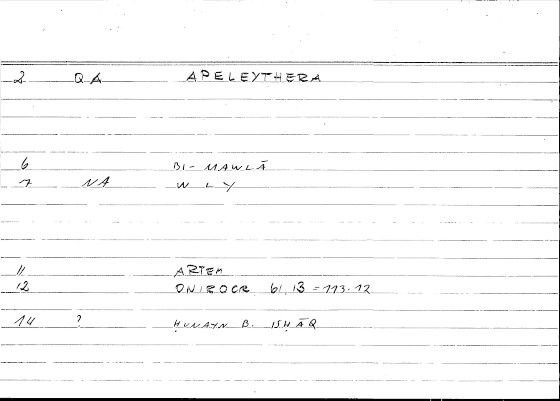 2 QA APELEYTHERA
6 BI-MAWLĀ
7 NA WLY
11 ARTEM
12 ONIROCR 61,13 = 113.12
14 ? ḤUNAYN B. ISḤĀQ